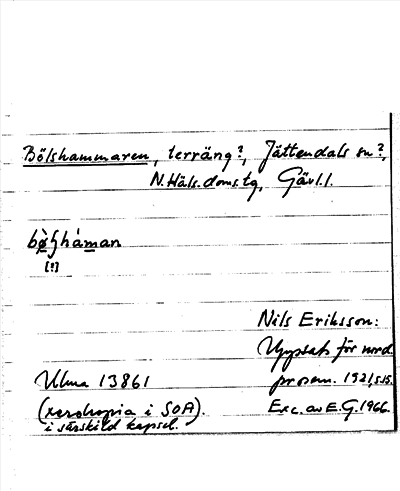 Bölshammaren, terräng?, Jättendals sn?,
N. Häls. doms.tg, Gävl.l.
bø̀ɮháman
[!]
Nils Eriksson:
Uppsats för nord.
prosem. 1921, s.15.
Exc. av E.G. 1966.
Ulma 13861
(xerokopia i SOA).
i särskild kapsel.